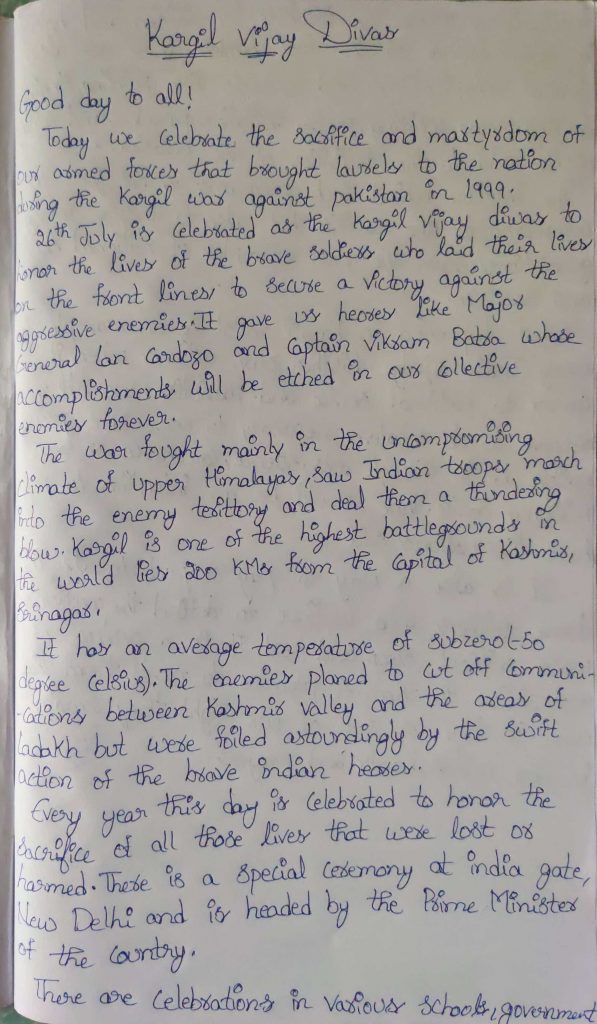 Kargil Vijay Divas
Good day to all!
Today we celebrate the sacrifice and martyrdom of
our armed forces that brought laurels to the nation
during the Kargil war against pakistan in 1999.
26th July is celebrated as the Kargil Vijay diwas to
honor the lives of the brave soldiers who laid their lives
on the front lines to secure a victory against the
aggressive enemies. It gave us heores like Major
General Ian Cardozo and Captain Vikram Batra whose
accomplishments will be etched in our collective
enomies forever.
The war fought mainly in the uncompromising
climate of upper Himalayas, saw Indian troops march
into the enemy terittory and deal them a thundering
blow. Kargil is one of the highest battlegrounds in
the world lies 200 KMs from the capital of Kashmir,
Srinagar.
It has an average temperature of subzero(-50
degree celsius). The enemies planed to cut off communi-
-cations between Kashmir valley and the areas of
Ladakh but were foiled astoundingly by the swift
action of the brave indian heores.
Every year this day is celebrated to honor the
sacrifice of all those lives that were lost or
harmed. There is a special ceremony at india gate,
New Delhi and is headed by the Prime Minister
of the country.
There are celebrations in various schools, government